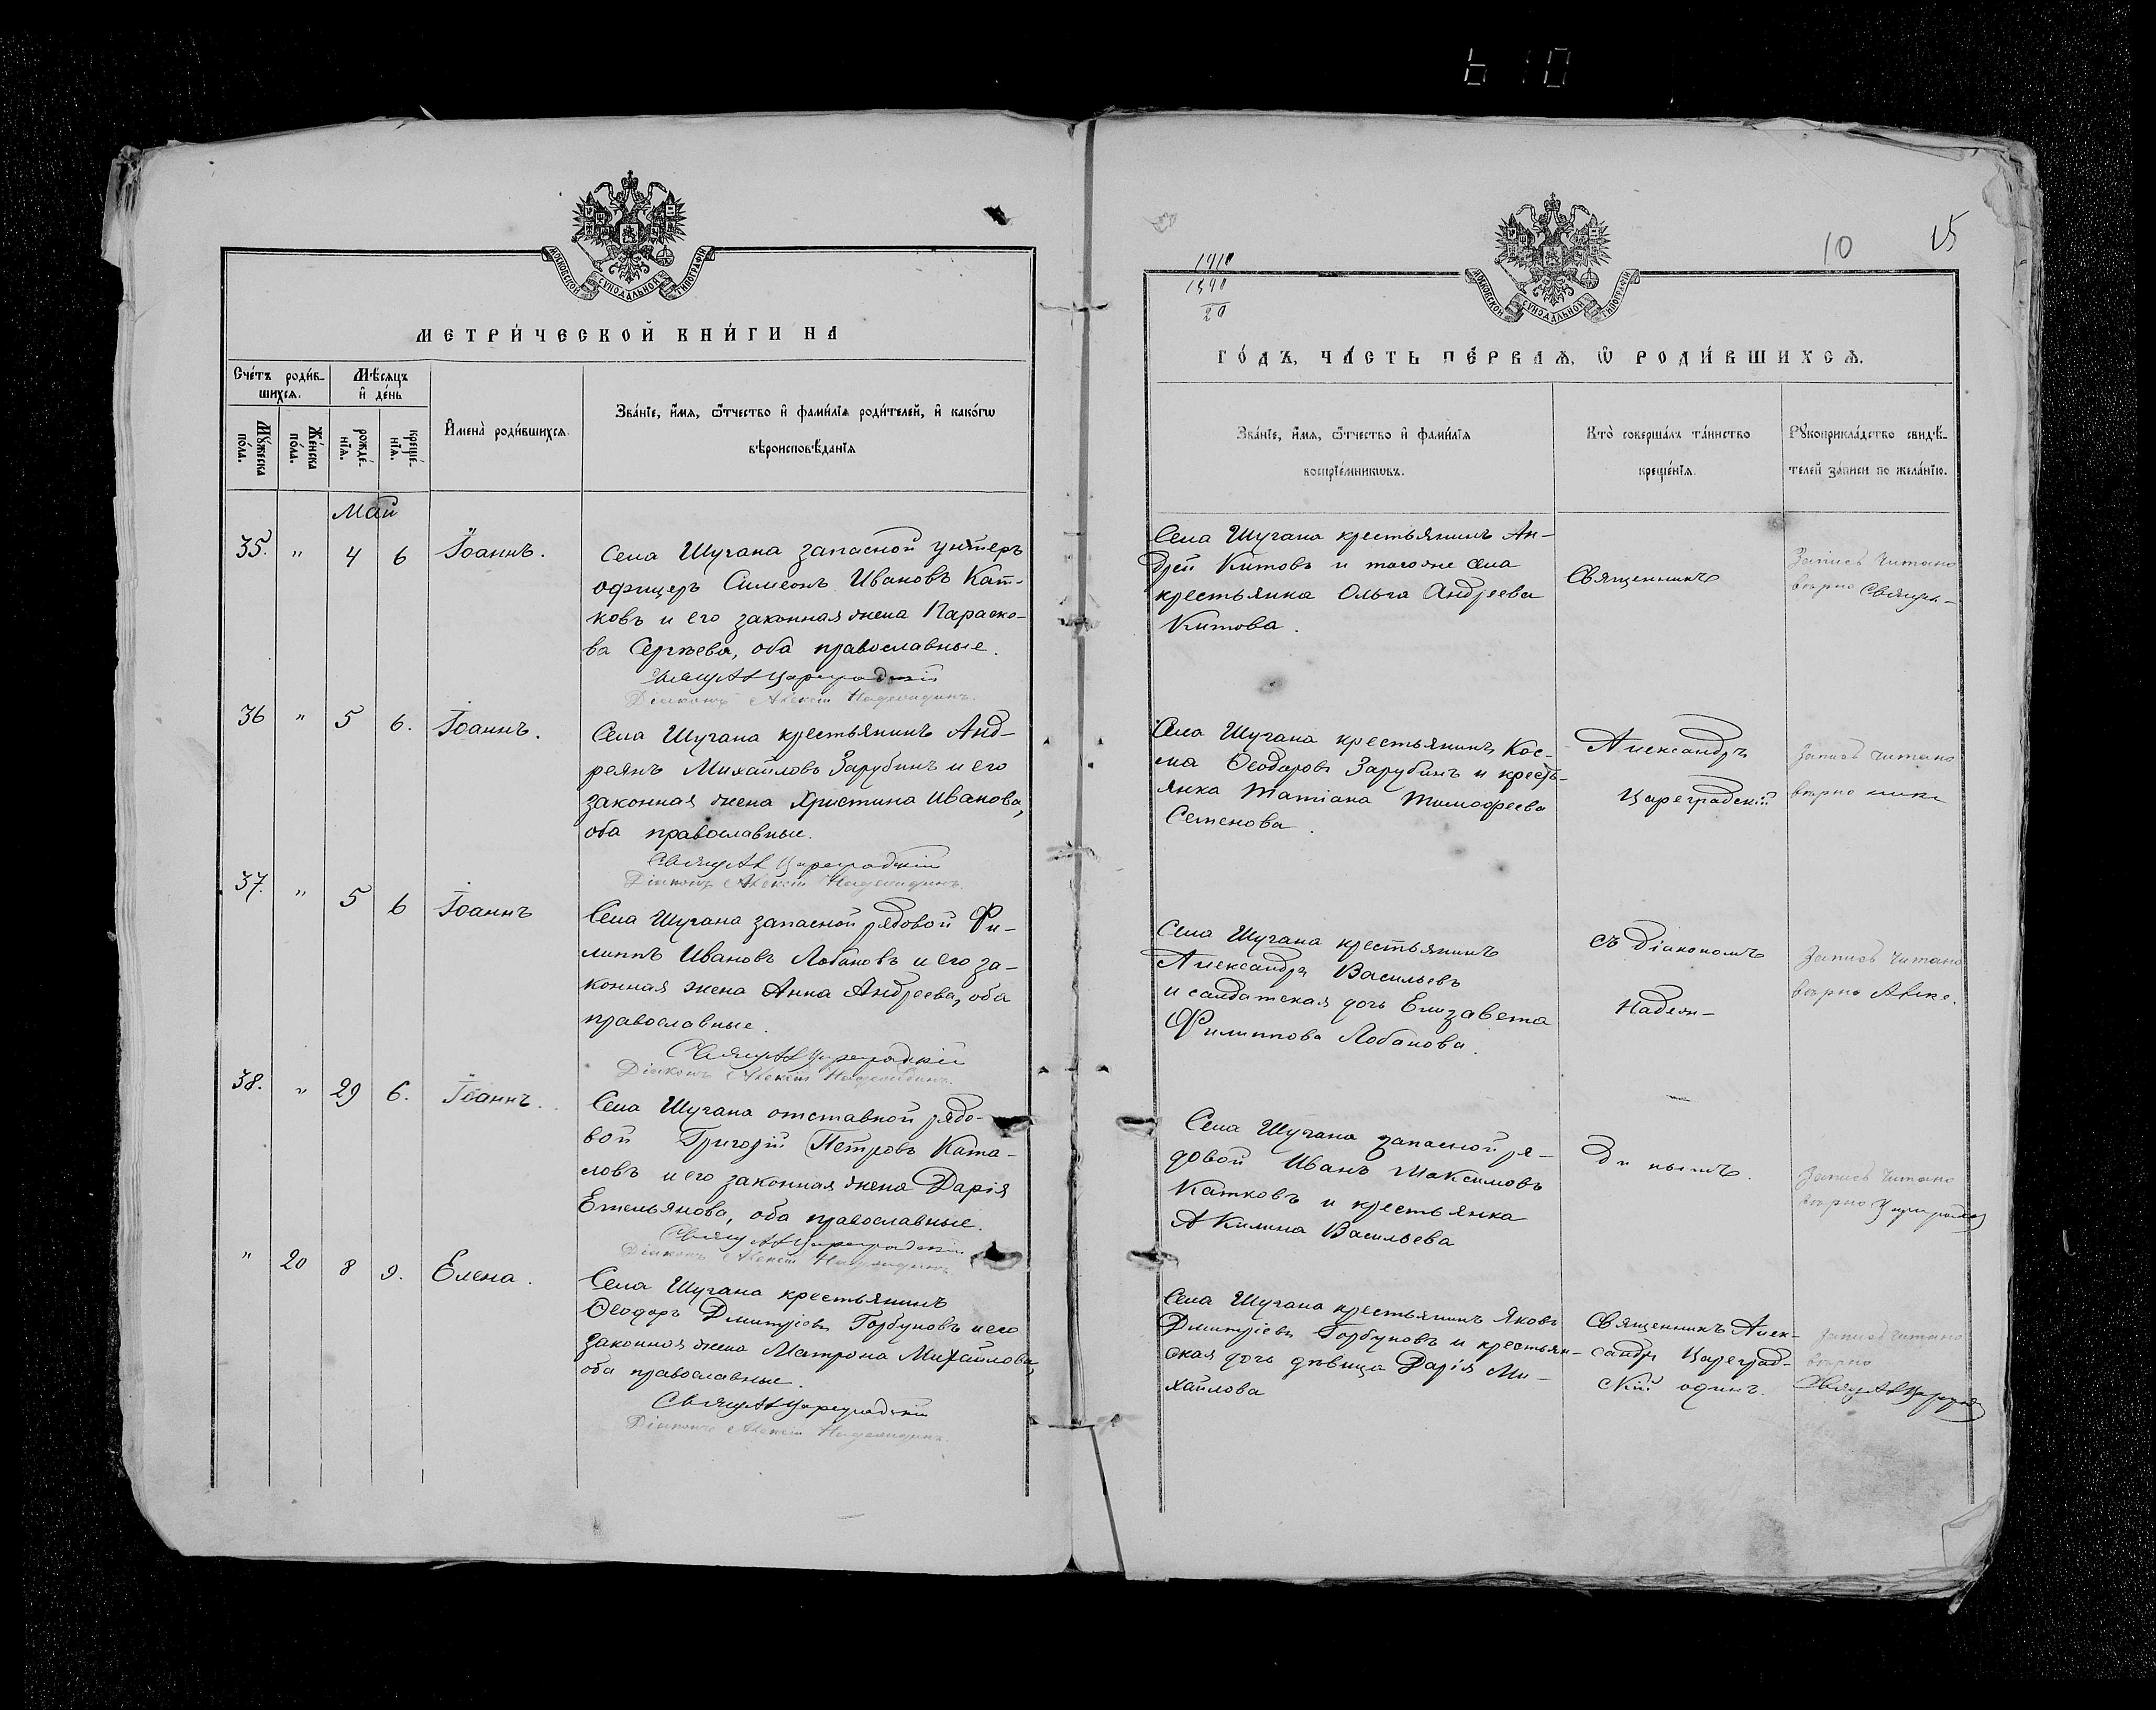 610
МОСКОВСКОЙ СѴНОДАЛЬНОЙ ТИПОГРАФІИ
МЕТРИ́ЧЕСКОЙ КНИ́ГИ НА
Сче́тъ роди́в-
шихсѧ.
Мѣ́сѧцъ
и҆ де́нь
Мꙋ́жеска
по́ла.
Же́нска
по́ла.
рожде́-
нїѧ.
креще́-
нїѧ.
И҆мена̀ роди́вшихсѧ.
Зва́нїе, и҆́мѧ, ѻ҆́тчество и҆ фами́лїѧ роди́телей, и҆ како́гѡ
вѣроисповѣ́данїѧ
Май
35. " 4 6 Іоаннъ.
Села Шугана запасной унтеръ
офицеръ Симеонъ Ивановъ Кат-
ковъ и его законная жена Параско-
ва Сергѣева, оба православные.
Свящ Ал Цареградскій
Діаконъ Алексій Надеждинъ.
36 " 5 6. Іоаннъ.
Села Шугана крестьянинъ Анд-
реянъ Михайловъ Зарубинъ и его
законная жена Христина Иванова,
оба православные.
Свящ Ал Цареградскій
Діаконъ Алексій Надеждинъ.
37. " 5 6 Іоаннъ
Села Шугана запасной рядовой Фи-
липпъ Ивановъ Лобановъ и его за-
конная жена Анна Андреева, оба
православные.
Свящ Ал Цареградскій
Діаконъ Алексій Надеждинъ.
38. " 29 6. Іоаннъ.
Села Шугана отставной рядо-
вой Григорій Петровъ Ката-
ловъ и его законная жена Дарія
Емельянова, оба православные.
Свящ Ал Цареградскій
Діаконъ Алексій Надеждинъ
" 20 8 9. Елена.
Села Шугана крестьянинъ
Ѳеодоръ Димитріевъ Горбуновъ и его
законная жена Матрона Михайлова,
оба православные.
Свящ Ал Цареградскій
Діаконъ Алексій Надеждинъ.
10
15
1910
1890
20
МОСКОВСКОЙ СѴНОДАЛЬНОЙ ТИПОГРАФІИ
ГО́ДЪ, ЧА́СТЬ ПЕ́РВАѦ, Ѡ҆ РОДИ́ВШИХСѦ.
Зва́нїе, и҆́мѧ, ѻ҆́тчество и҆ фами́лїѧ
воспрїе́мникѡвъ.
Кто̀ соверша́лъ та́инство
креще́нїѧ.
Рꙋкоприкла́дство свидѣ́-
телей за́писи по жела́нїю.
Села Шугана крестьянинъ Ан-
дрей Китовъ и тогоже села
крестьянка Ольга Андреева
Китова.
Священникъ
Запись читано
вѣрно Священ-
Села Шугана крестьянинъ Кос-
ма Ѳеодоровъ Зарубинъ и кресть-
янка Татіана Тимофеева
Семенова.
Александръ
Цареградскій
Запись читано
вѣрно никъ
Села Шугана крестьянинъ
Александръ Васильевъ
и солдатская дочь Елизавета
Филиппова Лобанова.
съ діакономъ
Надеж-
Запись читано
вѣрно Алекс.
Села Шугана запасной ря-
довой Иванъ Максимовъ
Катковъ и крестьянка
Акилина Васильева
динымъ.
Запись читано
вѣрно Цареградск
Села Шугана крестьянинъ Яковъ
Димитріевъ Горбуновъ и крестьян-
ская дочь дѣвица Дарія Ми-
хайлова
Священникъ Алек-
сандръ Цареград-
скій одинъ.
Запись читано
вѣрно
Свящ Ал Цареград